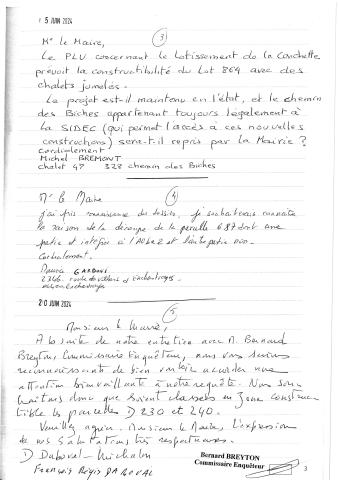 15 JUIN 2024
3
Mr le Maire,
Le PLU concernant le lotissement de la Conchette
prévoit la constructibilité du Lot 864 avec des
chalets jumelés.
Le projet est-il maintenu en l'état, et le chemin
des Biches appartenant toujours légalement à
la SIDEC (qui permet l'accès à ces nouvelles
constructions) sera-t-il repris par la Mairie ?
Cordialement
Michel BREMONT
chalet 47 328 chemin des Biches
Mr le Maire
4
J'ai pris connaissance du dossier, je souhaiterais connaitre
la raison de la découpe de la parcelle 687 dont une
partie est intégrée à l'AUb2 et l'autre partie non.
Cordialement.
20 JUIN 2024
5
Monsieur le Maire,
A la suite de notre entretien avec M. Bernard
Breyton, Commissaire Enquêteur, nous vous serions
reconnaissants de bien vouloir accorder une
attention bienveillante à notre requête. Nous sou
haitons donc que soient classées en zone construc
tible les parcelles D 230 et 240.
Veuillez agréer, Monsieur le Maire, l'expression
de nos salutations très respectueuses.
D Duboval-Michalon
François Régis DABOVAL
Bernard BREYTON
Commissaire Enquêteur
3